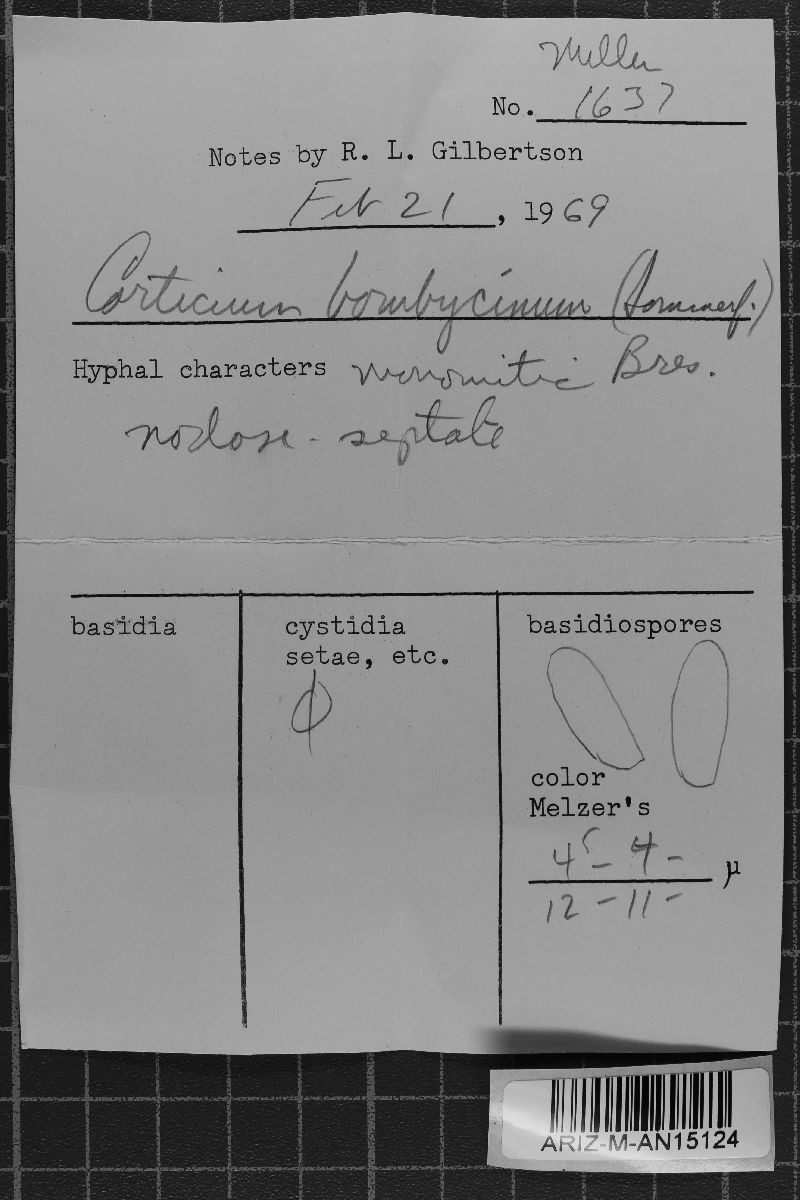 Miller
No. 1637
Notes by R. L. Gilbertson
Feb 21, 1969
Corticium bombycinum (Sommerf.)
Hyphal characters monomitic Bres.
nodose-septate
basidia
cystidia
setae, etc.
ϕ
basidiospores
color
Melzer's
4⁵- 4-
12-11- µ
ARIZ-M-AN15124